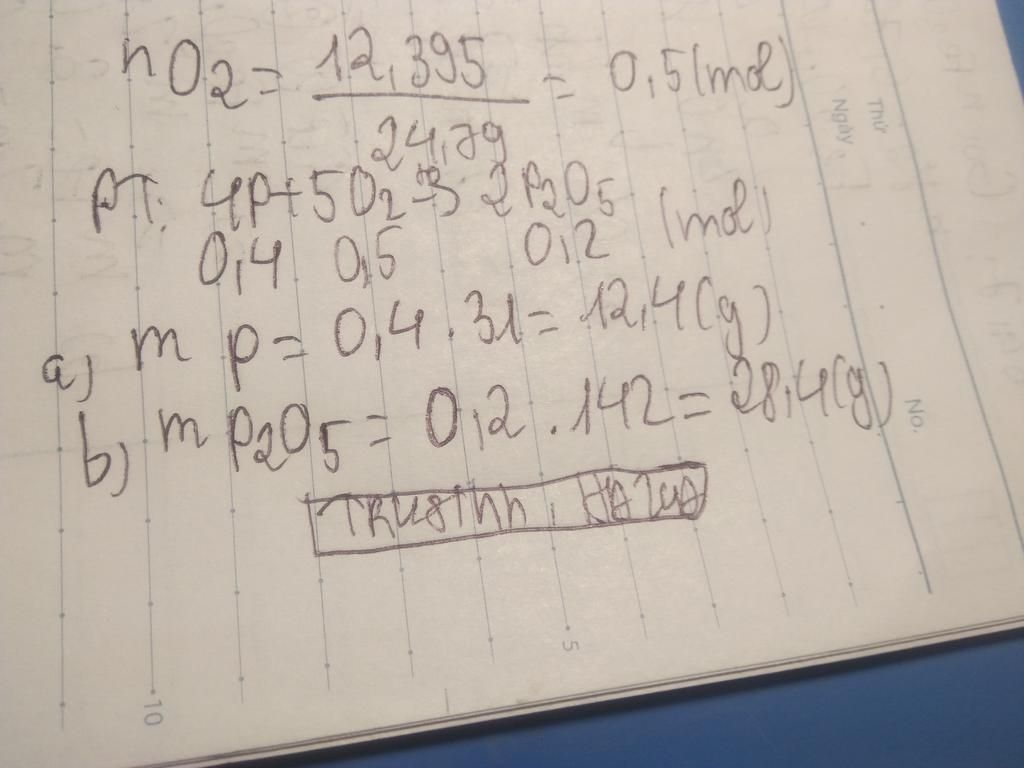 nO2 = 12,395 / 24,79 = 0,5 (mol)
PT: 4P + 5O2 → 2P2O5
0,4 0,5 0,2 (mol)
a) m P = 0,4 . 31 = 12,4 (g)
b) m P2O5 = 0,2 . 142 = 28,4 (g)
Thứ
Ngày
No.
5
10